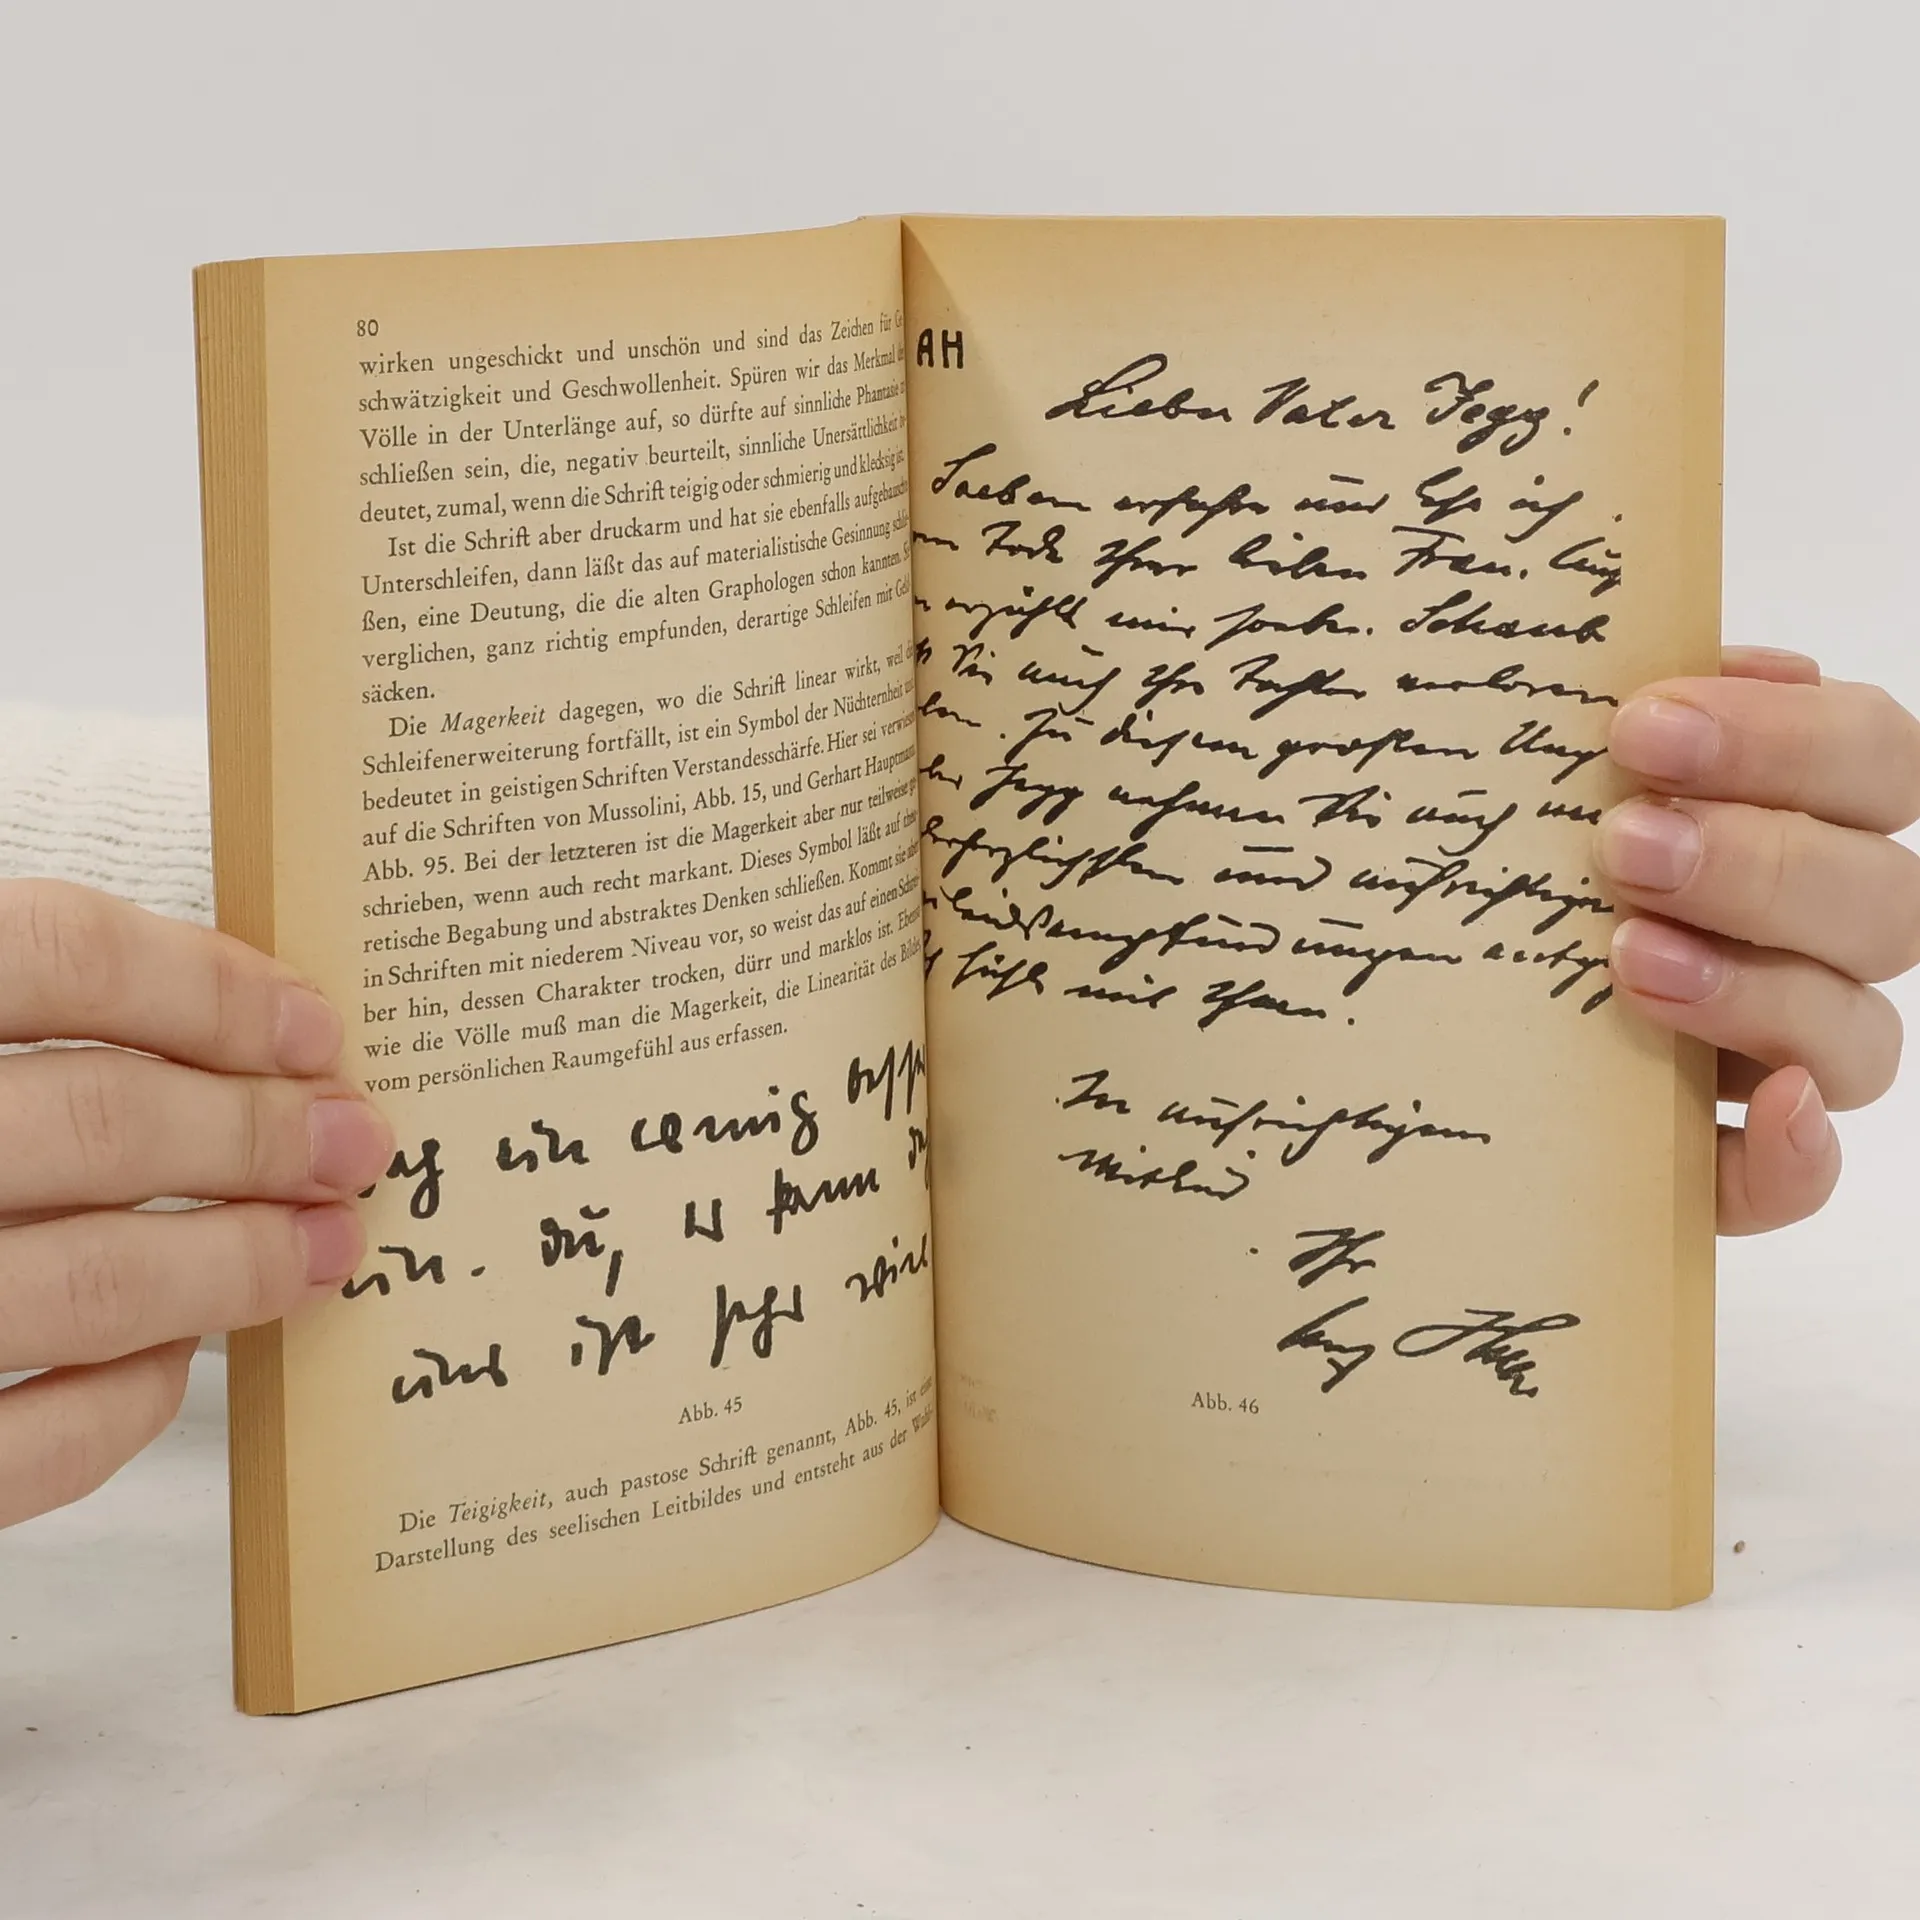 80
wirken ungeschickt und unschön und sind das Zeichen für Ge-
schwätzigkeit und Geschwollenheit. Spüren wir das Merkmal der
Völle in der Unterlänge auf, so dürfte auf sinnliche Phantasie
schließen sein, die, negativ beurteilt, sinnliche Unersättlichkeit be-
deutet, zumal, wenn die Schrift teigig oder schmierig und klecksig ist.
Ist die Schrift aber druckarm und hat sie ebenfalls aufgebauschte
Unterschleifen, dann läßt das auf materialistische Gesinnung schlie-
ßen, eine Deutung, die die alten Graphologen schon kannten. Sie
verglichen, ganz richtig empfunden, derartige Schleifen mit Geld-
säcken.
Die Magerkeit dagegen, wo die Schrift linear wirkt, weil die
Schleifenerweiterung fortfällt, ist ein Symbol der Nüchternheit und
bedeutet in geistigen Schriften Verstandesschärfe. Hier sei verwiesen
auf die Schriften von Mussolini, Abb. 15, und Gerhart Hauptmann,
Abb. 95. Bei der letzteren ist die Magerkeit aber nur teilweise ge-
schrieben, wenn auch recht markant. Dieses Symbol läßt auf theo-
retische Begabung und abstraktes Denken schließen. Kommt sie aber
in Schriften mit niederem Niveau vor, so weist das auf einen Schrei-
ber hin, dessen Charakter trocken, dürr und marklos ist. Ebenso
wie die Völle muß man die Magerkeit, die Linearität des Bildes,
vom persönlichen Raumgefühl aus erfassen.
ein wenig
ein. Du, es kann
uns ist sehr
Abb. 45
Die Teigigkeit, auch pastose Schrift genannt, Abb. 45, ist eine
Darstellung des seelischen Leitbildes und entsteht aus der Wahl
AH
Lieber Vater Jegg!
Soeben erfahre und lese ich
Tode Ihrer lieben Frau.
erzählt mir soeben. Schaub
Sie auch Ihre Tochter verloren
Zu diesem großen Ung
Jegg nehmen Sie auch
herzlichsten und aufrichtigen
entge
fühle mit Ihnen.
In aufrichtigem
Mitleid
Ihr
Abb. 46